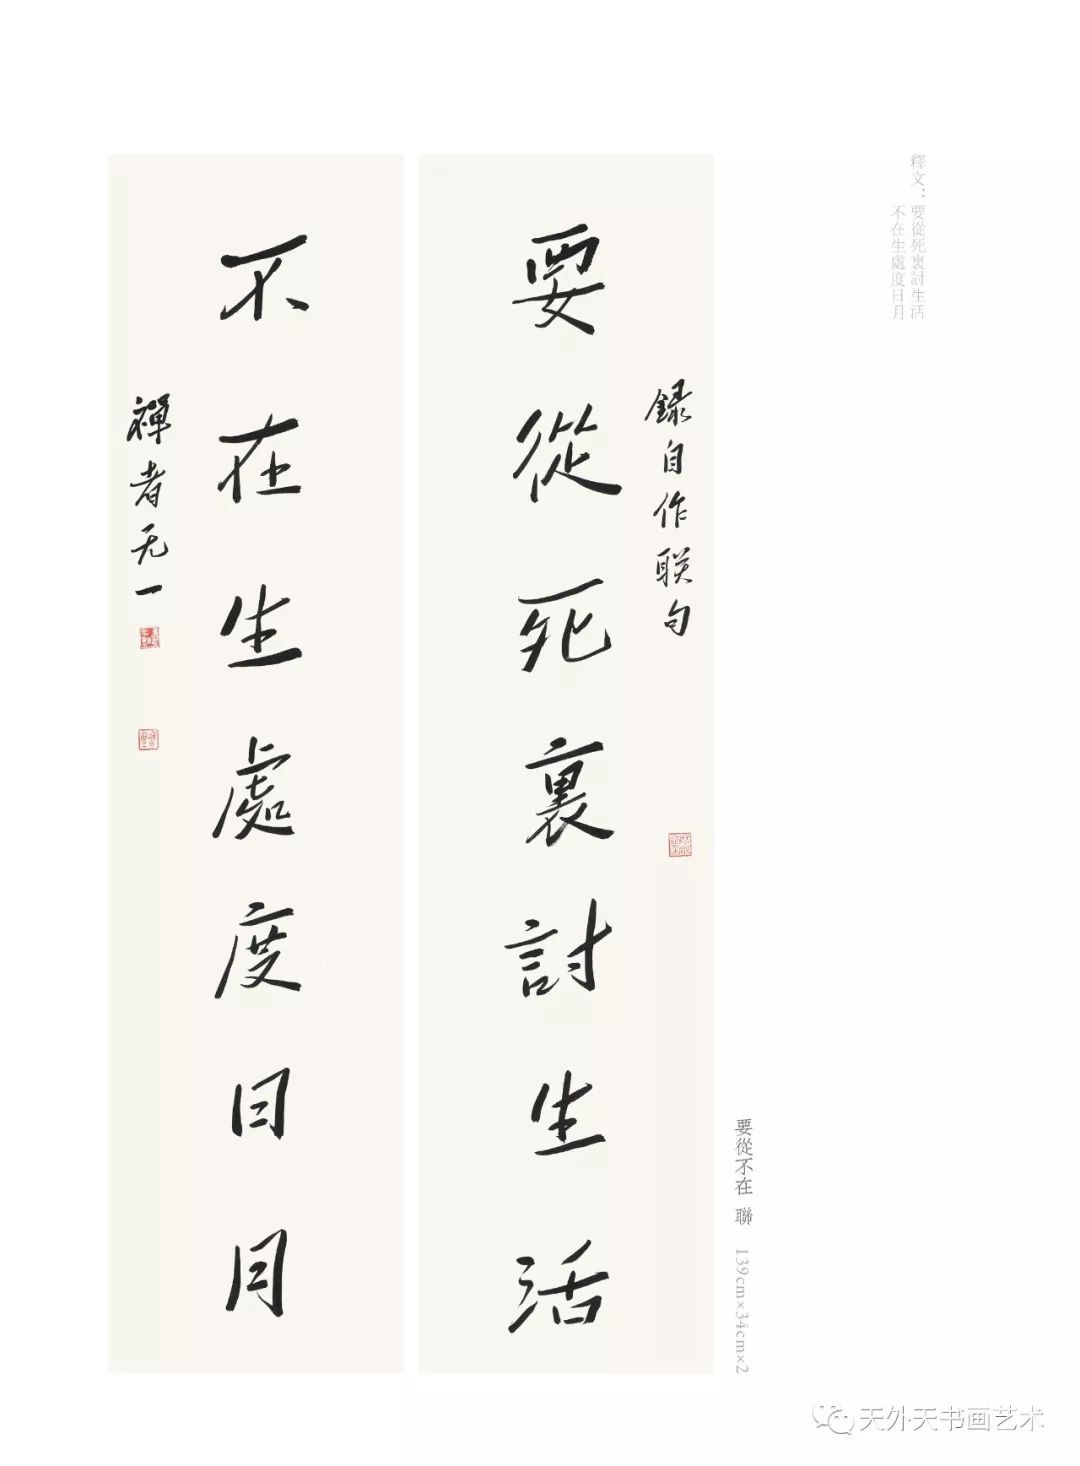 釋文：要從死裏討生活
不在生處度日月
要從不在 聯 139cm×34cm×2
錄自作联句
要從死裏討生活
不在生處度日月
禪者无一
天外天书画艺术